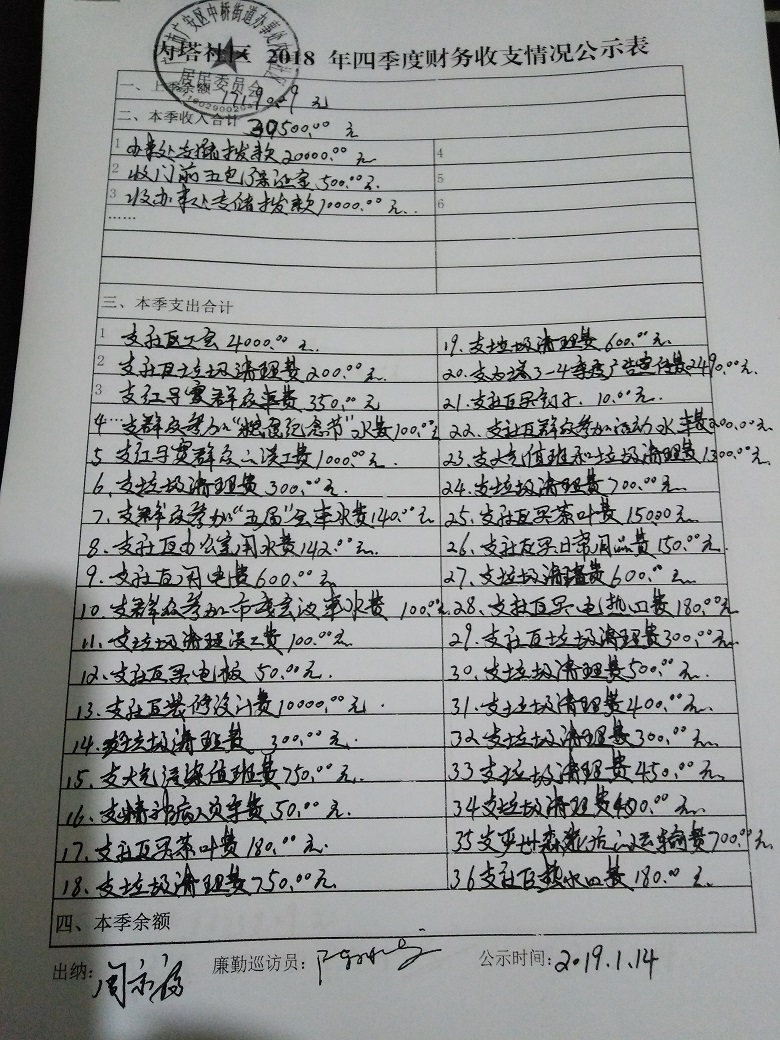 内塔社区 2018 年四季度财务收支情况公示表
居民委员会
一、上季余额 元
二、本季收入合计 30500.00 元
1 办事处专储拨款20000.00元 4
2 收门前五包保证金500.00元. 5
3 收办事处专储拨款10000.00元. 6
……
三、本季支出合计
1 支社区工会4000.00元. 19.支垃圾清理费600.00元.
2 支社区垃圾清理费200.00元 20.支内塔3-4季度广告宣传费2490.00元.
3 支红马夹群众车费350.00元 21.支社区买钉子. 10.00元.
4…支群众参加 纪念节"水费100.00元 22.支社区群众参加活动水车费200.00元.
5 支红马夹群众误工费1000.00元. 23.支大气值班和垃圾清理费1300.00元.
6.支垃圾清理费300.00元. 24.支垃圾清理费700.00元.
7.支群众参加"五届"会车水费140.00元 25.支社区买茶叶费150.00元
8.支社区办公室用水费142.00元. 26.支社区买日常用品费150.00元.
9.支社区用电费600.00元. 27.支垃圾清理费600.00元.
10.支群众参加市 车水费 100.00元. 28.支社区买电热 费180.00元
11.支垃圾清理误工费100.00元. 29.支社区垃圾清理费300.00元.
12.支社区买电板 50.00元. 30.支垃圾清理费500.00元.
13.支社区装修设计费10000.00元. 31.支垃圾清理费400.00元.
14.支垃圾清理费 300.00元. 32.支垃圾清理费300.00元.
15.支大气污染值班费750.00元. 33支垃圾清理费450.00元.
16.支精神病人员车费50.00元. 34支垃圾清理费 元.
17.支社区买茶叶费180.00元. 35支 运输费700.00元.
18.支垃圾清理费750.00元. 36支社区热水 费180.00元.
四、本季余额
出纳: 廉勤巡访员: 公示时间:2019.1.14